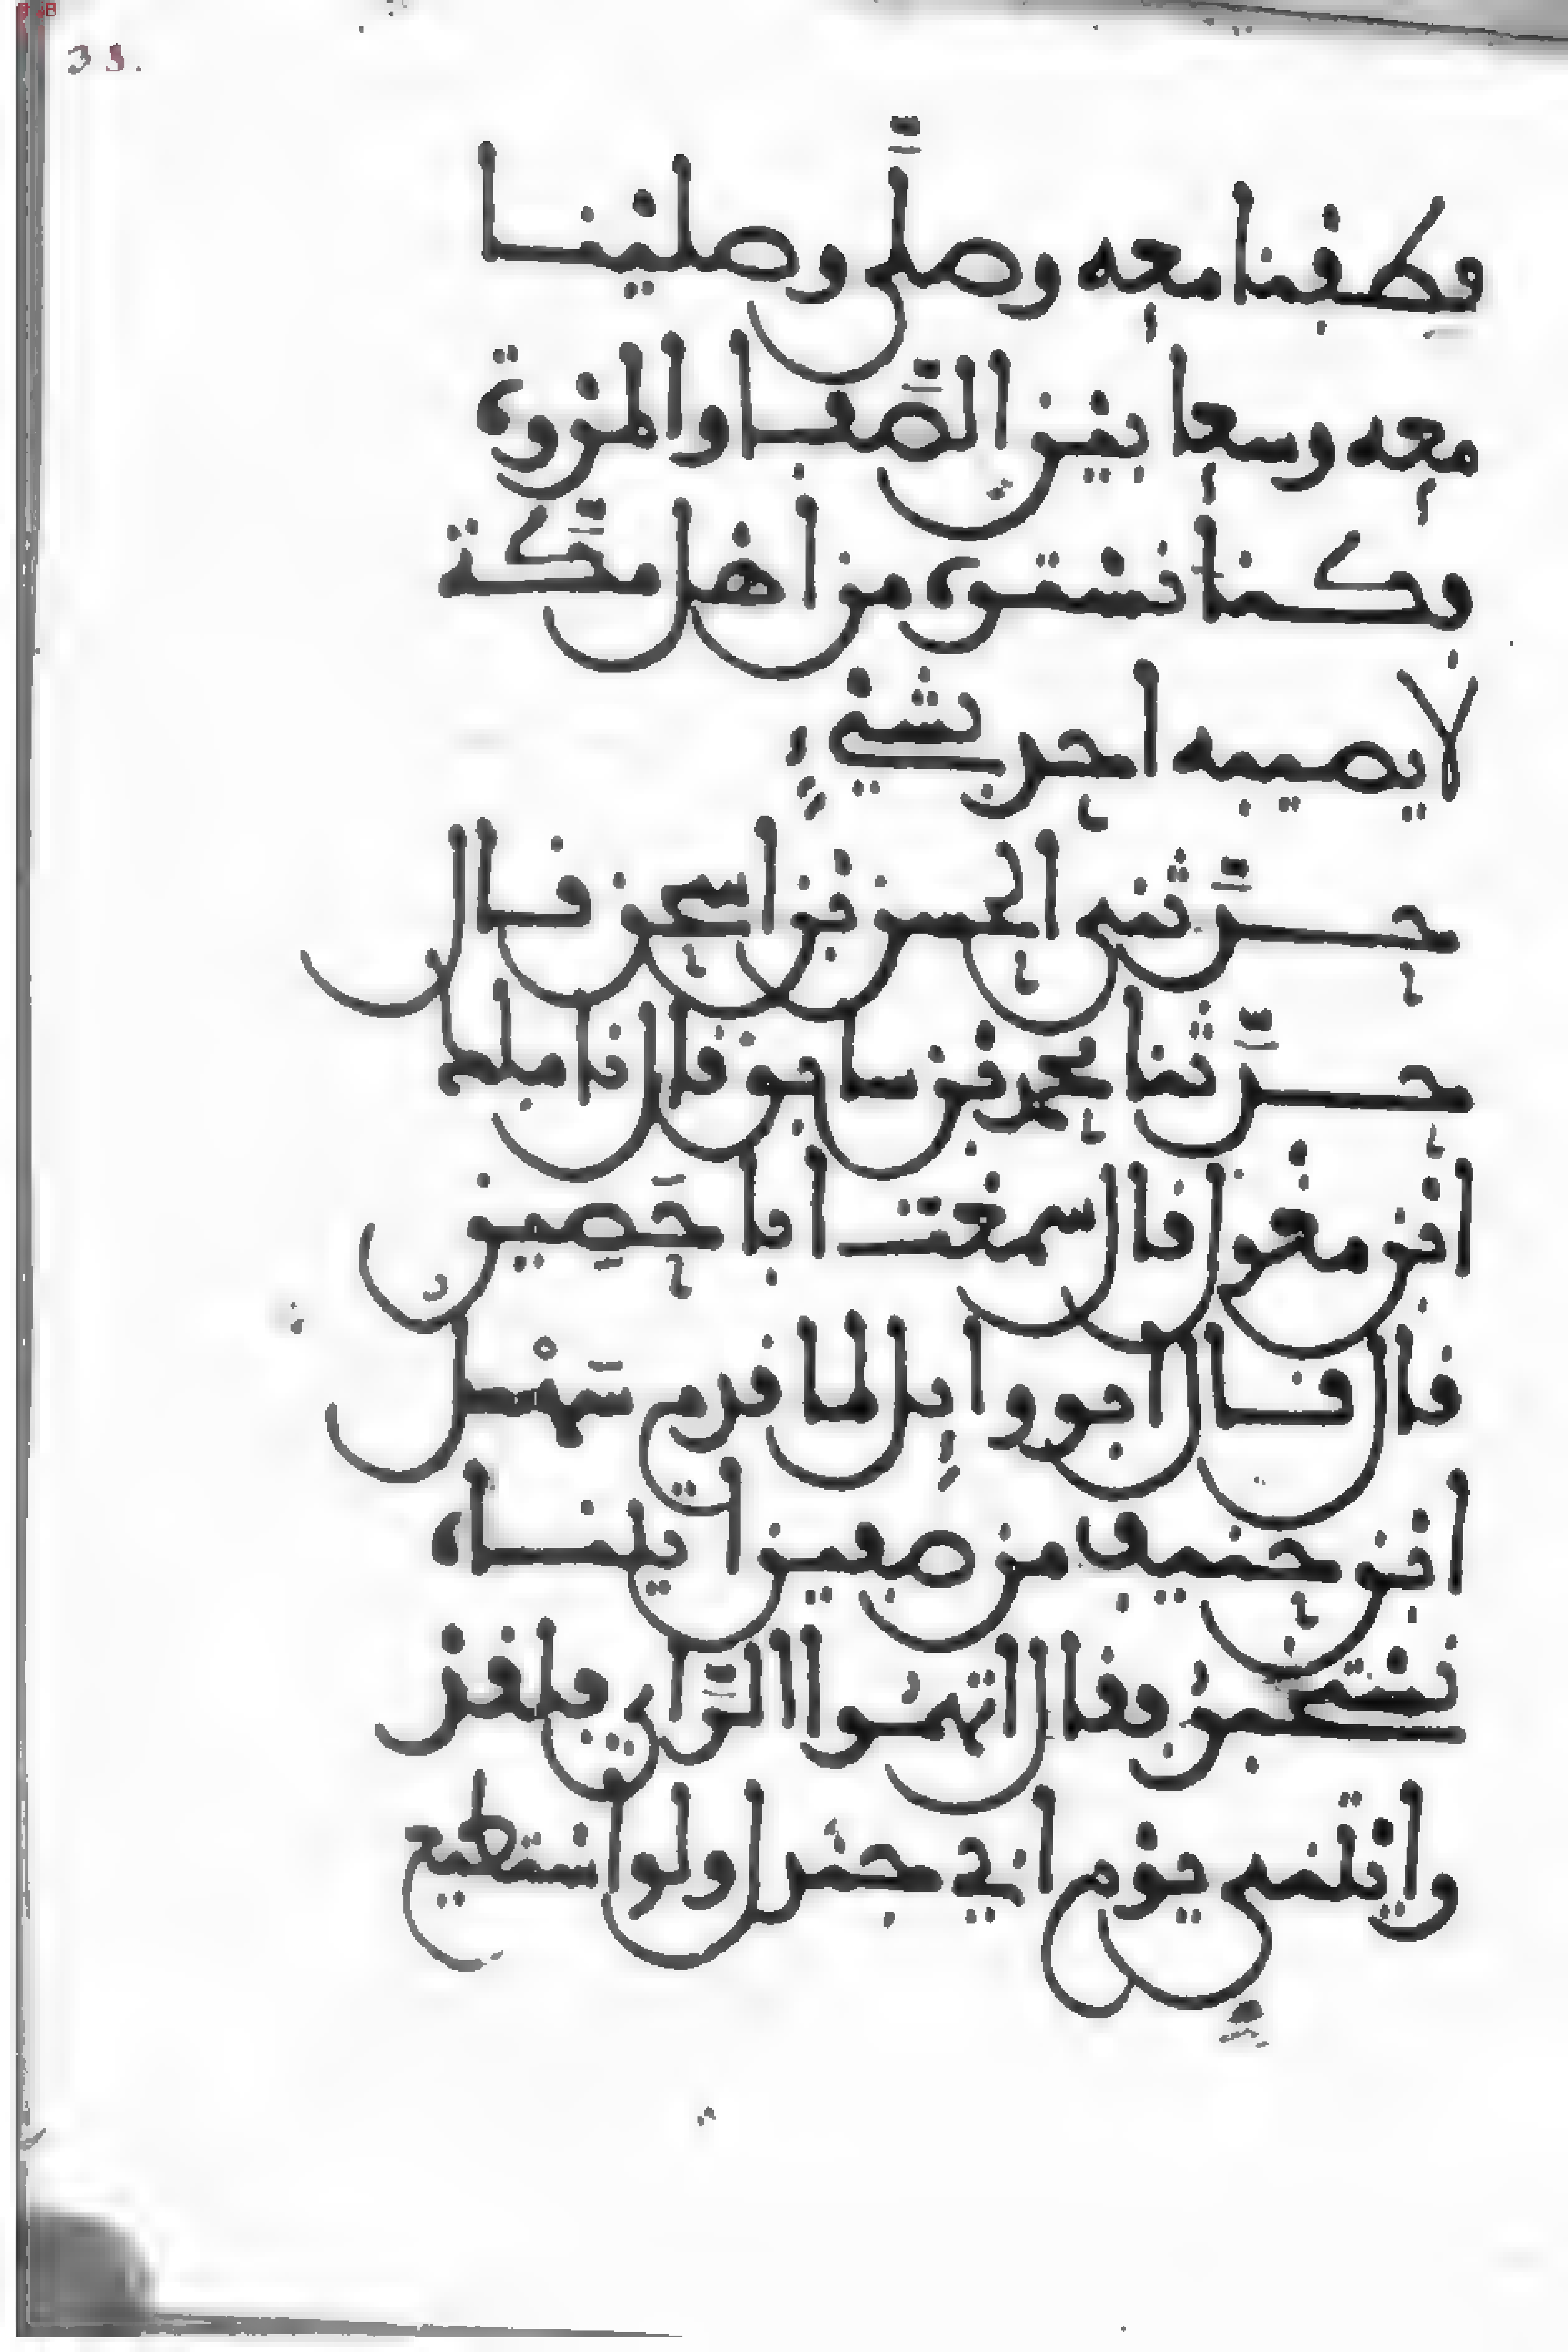 33.
فطفنا معه وصلى وصلينا
معه وسعا بين الصفا والمروة
وكنا نستره من اهل مكة
لا يصيبه احد بشيء
حدثني الحسن بن اسحق قال
حدثنا محمد بن سابق قال نا ملك
ابن مغول قال سمعت ابا حصين
قال قال ابو وايل لما قدم سهل
ابن حنيف من صفين اتيناه
نستخبره فقال اتهموا الراي فلقد
رايتني يوم ابي جندل ولو استطيع